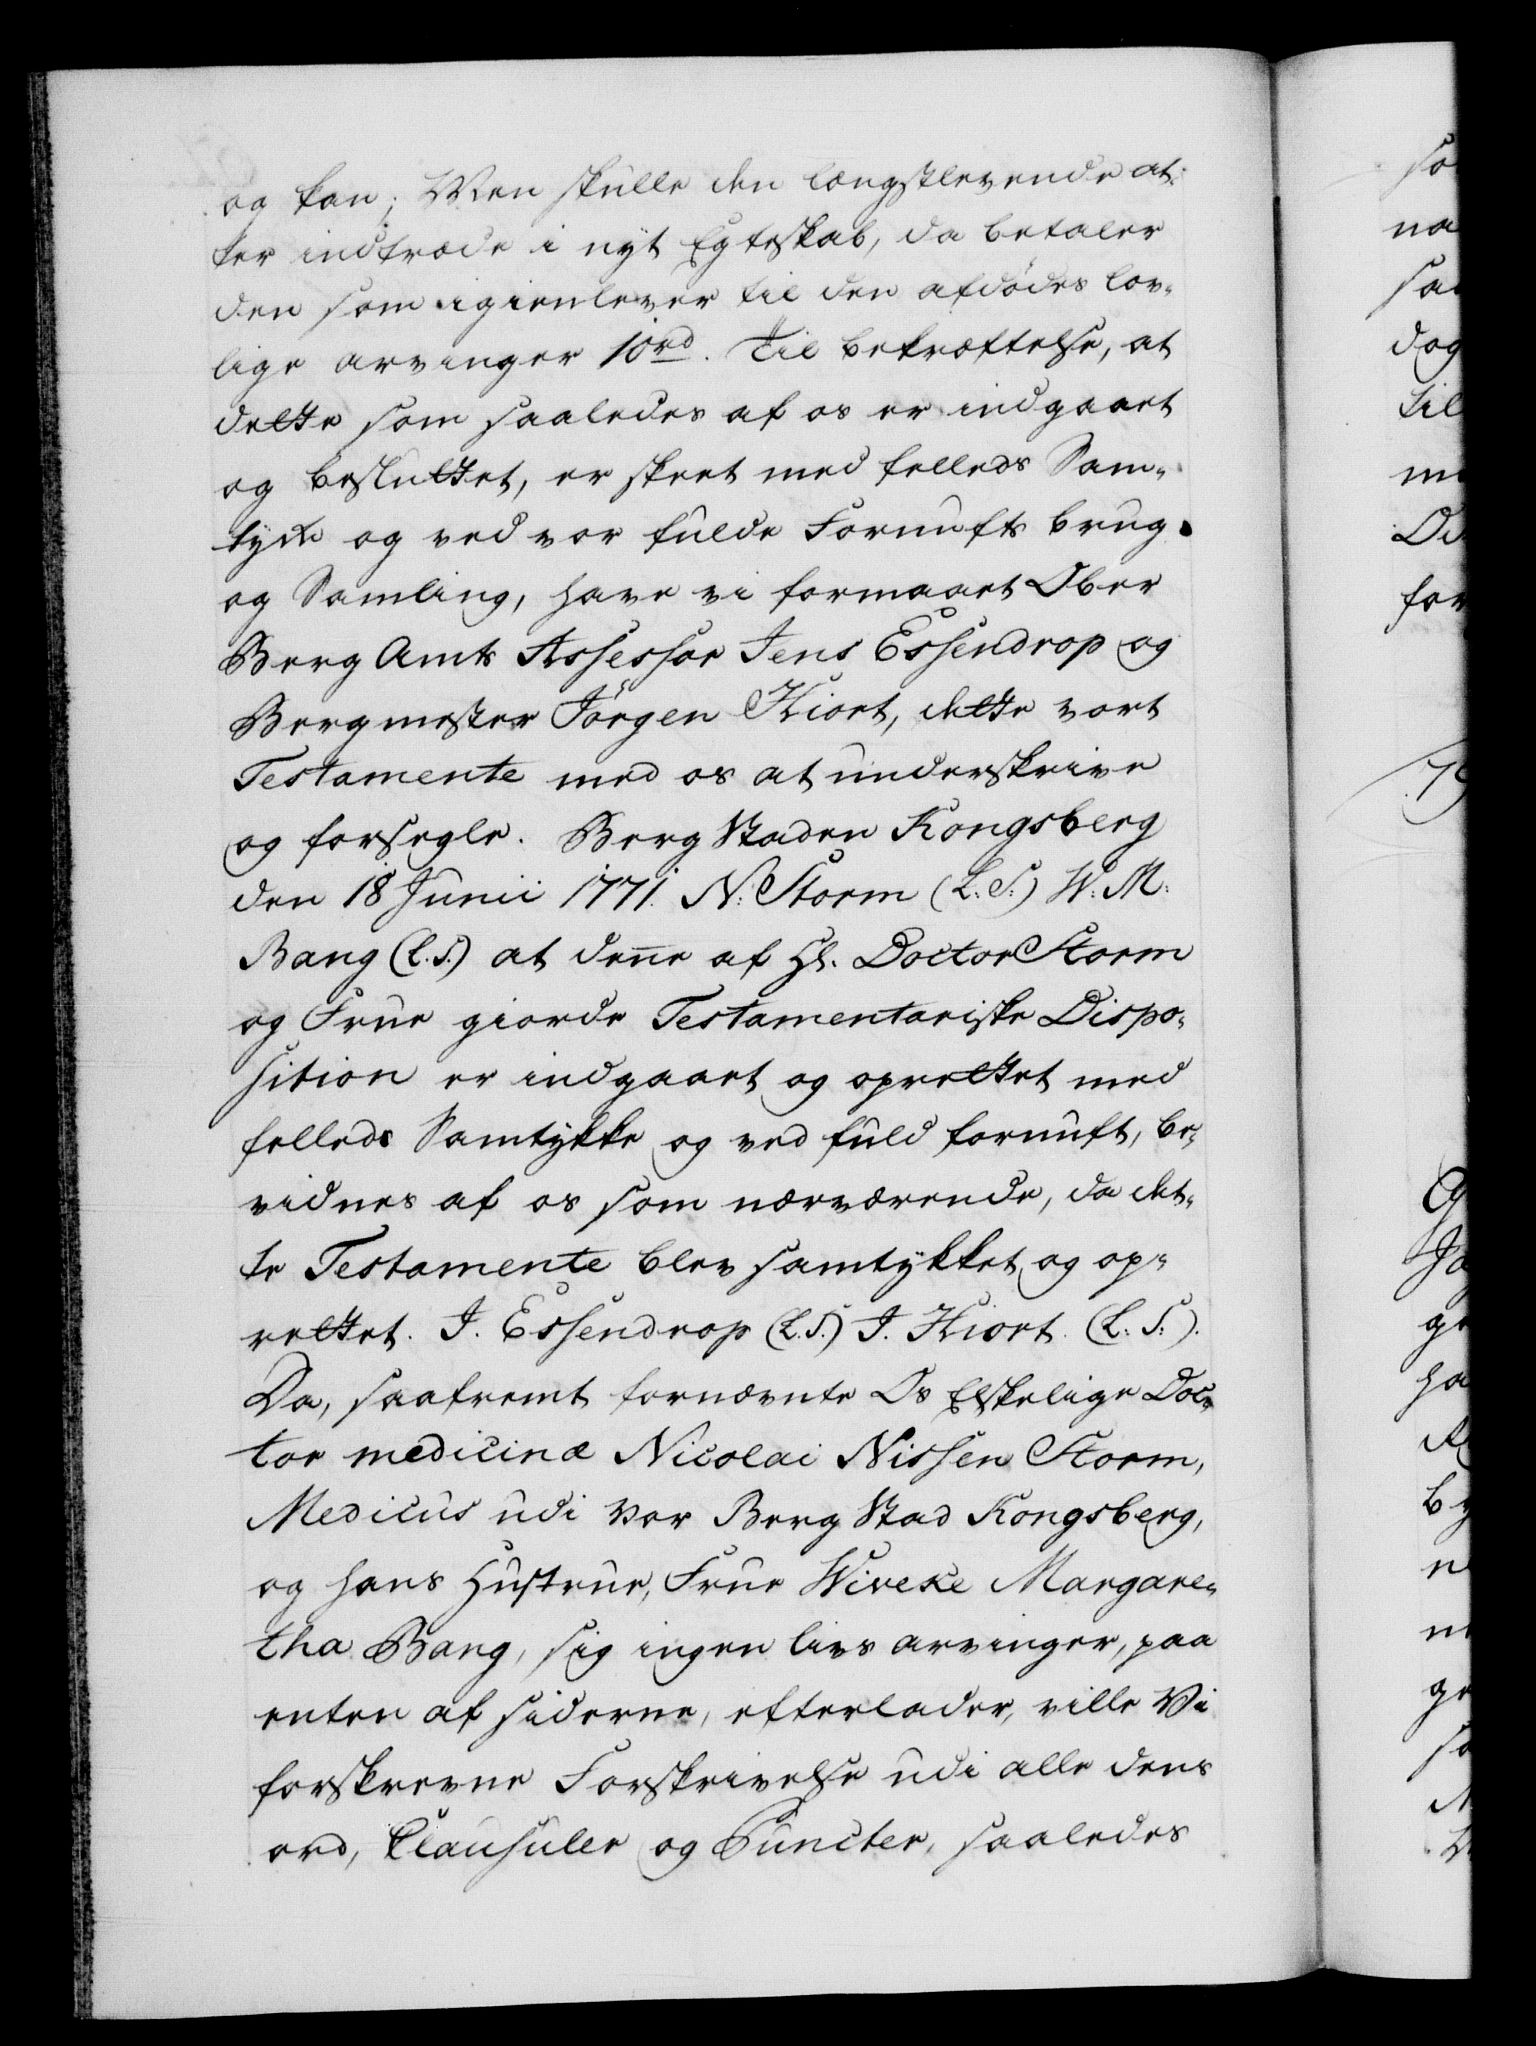 og kan; Men skulle den længstlevende at-
ter indtræde i nyt Egteskab, da betaler
den som igienlever til den afdødes lov-
lige arvinger 10 rd. Til bekræftelse, at
dette som saaledes af os er indgaaet
og besluttet, er skeet med felleds Sam-
tycke og ved vor fulde Fornufts brug
og Samling, have vi formaaet Ober
Berg Amts Assessor Jens Essendrop og
Bergmester Jörgen Hiort, dette vort
Testamente med os at underskrive
og forsegle. Berg Staden Kongsberg
den 18 Junii 1771. N: Storm (L: S:) W: M:
Bang (L. S.) at denne af Hr. Doctor Storm
og Frue giorde Testamentariske Dispo-
sition er indgaaet og oprettet med
felleds Samtykke og ved fuld fornuft, be-
vidnes af os som nærværende, da det-
te Testamente blev samtykket og op-
rettet. J. Essendrop (L. S.) J. Hiort. (L: S:).
Da, saafremt fornævnte Os Elskelige Doc-
tor medicinæ Nicolai Nissen Storm,
Medicus udi Vor Berg Stad Kongsberg,
og hans Hustrue, Frue Wiveke Margare-
tha Bang, sig ingen livs arvinger, paa
enten af siderne, efterlader, ville Vi
forskrevne Forskrivelse udi alle dens
ord, Clausuler og Puncter, saaledes